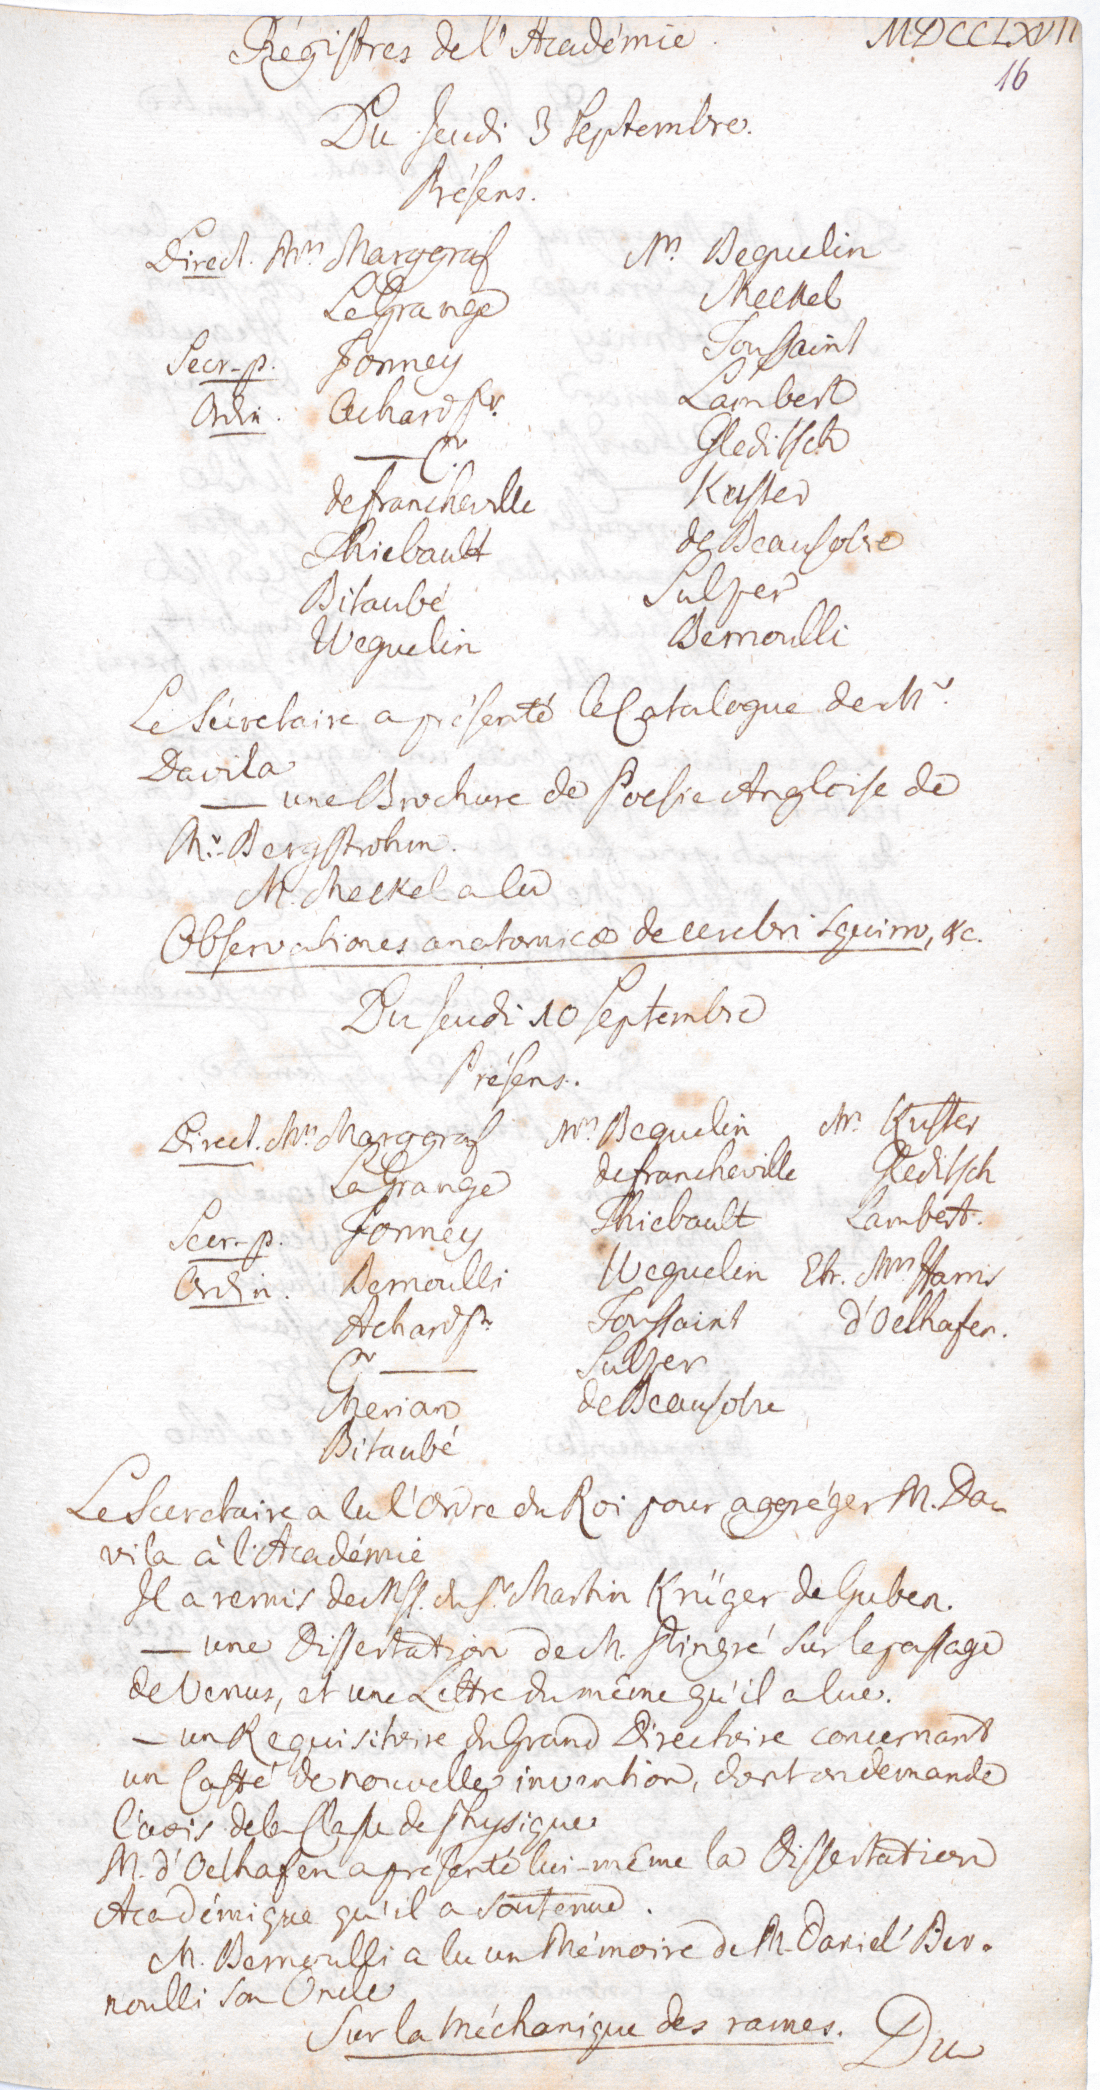 Régistres de l'Académie. MDCCLXVII
16
Du Jeudi 3 Septembre.
Présens.
Direct. Mrs Marggraf
LeGrange
Secr.-p. Formey
Ordin. Achard Sr.
— Cr.
de francheville
Thiebault
Bitaubé
Weguelin
Mrs. Beguelin
Meckel
Toussaint
Lambert
Gleditsch
Kuster
de Beausobre
Sulzer
Bernoulli
Le Sécretaire a présenté le Catalogue de Mr.
Davila
— une Brochure de Poesie Angloise de
Mr. Bergstrohm.
M. Meckel a lu
Observationes anatomicæ de cerebri squirro, &c.
Du Jeudi 10 Septembre
Présens.
Direct. Mrs Marggraf
LaGrange
Secr.-p. Formey
Ordin. Bernoulli
Achard Sr.
Cr —
Merian
Bitaubé
Mrs Beguelin
de francheville
Thiebault
Weguelin
Toussaint
Sulzer
de Beausobre
Mrs Kuster
Gleditsch
Lambert.
Etr. Mrs Harris
d'Oelhafen.
Le Secretaire a lu l'Ordre du Roi pour aggréger M. Da-
vila à l'Académie
Il a remis des Mss. du Sr. Martin Krüger de Guben.
— une Dissertation de M. Pingré sur le passage
de Venus, et une Lettre du même qu'il a lue.
— un Requisitoire du Grand Directoire concernant
un Caffé de nouvelle invention, dont on demande
l'avis de la Classe de Physique
M. d'Oelhafen a présenté lui-même la Dissertation
Académique qu'il a soutenue.
M. Bernoulli a lu un Mémoire de M. Daniel Ber-
noulli son Oncle
Sur la Méchanique des rames. Du